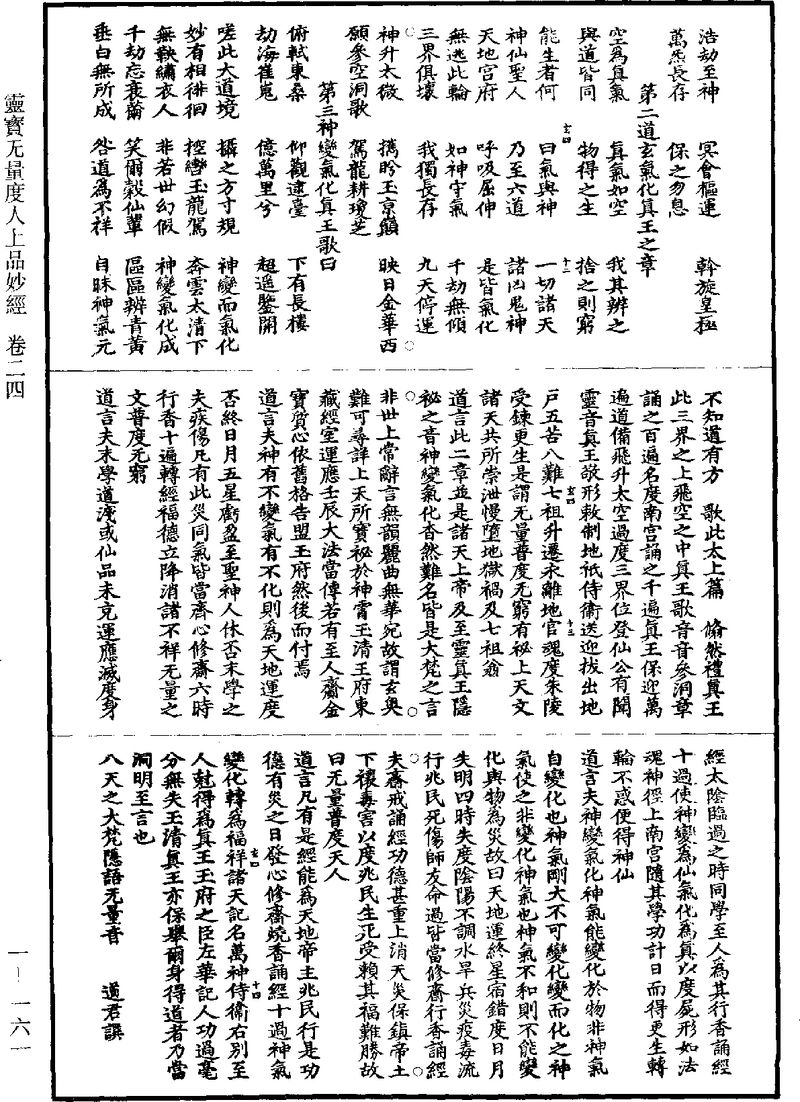 浩劫至神　冥會樞運　斡旋皇極
萬炁長存　保之勿息
第二道玄氣化真王之章
空為真氣　真氣如空　我其辨之
與道皆同　物得之生　捨之則窮
能生者何　曰氣與神　一切諸天
神仙聖人　乃至六道　諸凶鬼神
天地宮府　呼吸屈伸　是皆氣化
無逃此輪　如神守氣　千劫無傾
三界俱壞　我獨長存　九天停運
神升太微　攜昑玉京巔　映日金華西
願參空洞歌　駕龍耕瓊芝
第三神變氣化真王歌曰
俯軾東桑　仰觀逮臺　下有長樓
劫海崔嵬　億萬里兮　超遥鑒開
嗟此大道境　攝之方寸規　神變而氣化
妙有相徘徊　控轡玉龍駕　奔雲太清下
無鞅繡衣人　非若世幻假　神變氣化成
千劫忘衰薾　笑爾穀仙輩　區區辨青黃
垂白無所成　咎道為不祥　自昧神氣元
不知道有方　歌此太上篇　翛然禮真王
此三界之上飛空之中真王歌音音參洞章
誦之百遍名度南宮誦之千遍真王保迎萬
遍道備飛升太空過度三界位登仙公有聞
靈音真王敬形敕制地祇侍衛送迎拔出地
戶五苦八難七祖升遷永離地官魂度朱陵
受鍊更生是謂无量普度无窮有祕上天文
諸天共所崇泄慢墮地獄禍及七祖翁
道言此二章並是諸天上帝及至靈真王隱
祕之音神變氣化杳然難名皆是大梵之言
非世上常辭言無韻麗曲無華宛故謂玄奧
難可尋詳上天所寶祕於神霄玉清王府東
藏經室運應壬辰大法當傳若有至人齎金
寶質心依舊格告盟玉府然後而付焉
道言夫神有不變氣有不化則為天地運度
否終日月五星虧盈至聖神人休否末學之
夫疾傷凡有此災同氣皆當齊心修齋六時
行香十遍轉經福德立降消諸不祥无量之
文普度无窮
道言夫末學道淺或仙品未充運應滅度身
經太陰臨過之時同學至人為其行香誦經
十過使神變為仙氣化為真以度屍形如法
魂神徑上南宮隨其學功計日而得更生轉
輪不惑便得神仙
道言夫神變氣化神氣能變化於物非神氣
自變化也神氣剛大不可變化變而化之神
氣使之非變化神氣也神氣不和則不能變
化與物為災故曰天地運終星宿錯度日月
失明四時失度陰陽不調水旱兵災疫毒流
行兆民死傷師友命過皆當修齋行香誦經
夫齋戒誦經功德甚重上消天災保鎮帝土
下禳毒害以度兆民生死受賴其福難勝故
曰无量普度天人
道言凡有是經能為天地帝主兆民行是功
德有災之日發心修齋燒香誦經十過神氣
變化轉為福祥諸天記名萬神侍衛右別至
人剋得為真王玉府之臣左華記人功過毫
分無失玉清真王亦保舉爾身得道者乃當
洞明至言也
八天之大梵隱語无量音　道君譔
靈寶无量度人上品妙經　卷二四
一—一六一